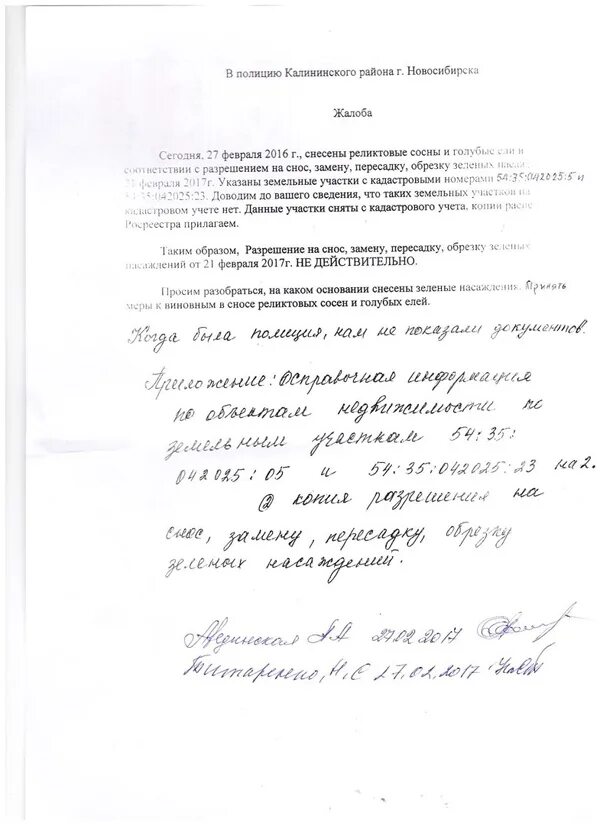 В полицию Калининского района г. Новосибирска
Жалоба
Сегодня, 27 февраля 2016 г., снесены реликтовые сосны и голубые ели в
соответствии с разрешением на снос, замену, пересадку, обрезку зеленых
21 февраля 2017г. Указаны земельные участки с кадастровыми номерами 54:35:042025:5 и
54:35:042025:23. Доводим до вашего сведения, что таких земельных участков на
кадастровом учете нет. Данные участки сняты с кадастрового учета, копии
Росреестра прилагаем.
Таким образом, Разрешение на снос, замену, пересадку, обрезку зеленых
насаждений от 21 февраля 2017г. НЕ ДЕЙСТВИТЕЛЬНО.
Просим разобраться, на каком основании снесены зеленые насаждения. Принять
меры к виновным в сносе реликтовых сосен и голубых елей.
Когда была полиция, нам не показали документов.
Приложение: справочная информация
по объектам недвижимости по
земельным участкам 54:35:
042025:05 и 54:35:042025:23 на 2.
② копия разрешения на
снос, замену, пересадку, обрезку
зеленых насаждений.
27.02.2017
Н.С 27.02.2017